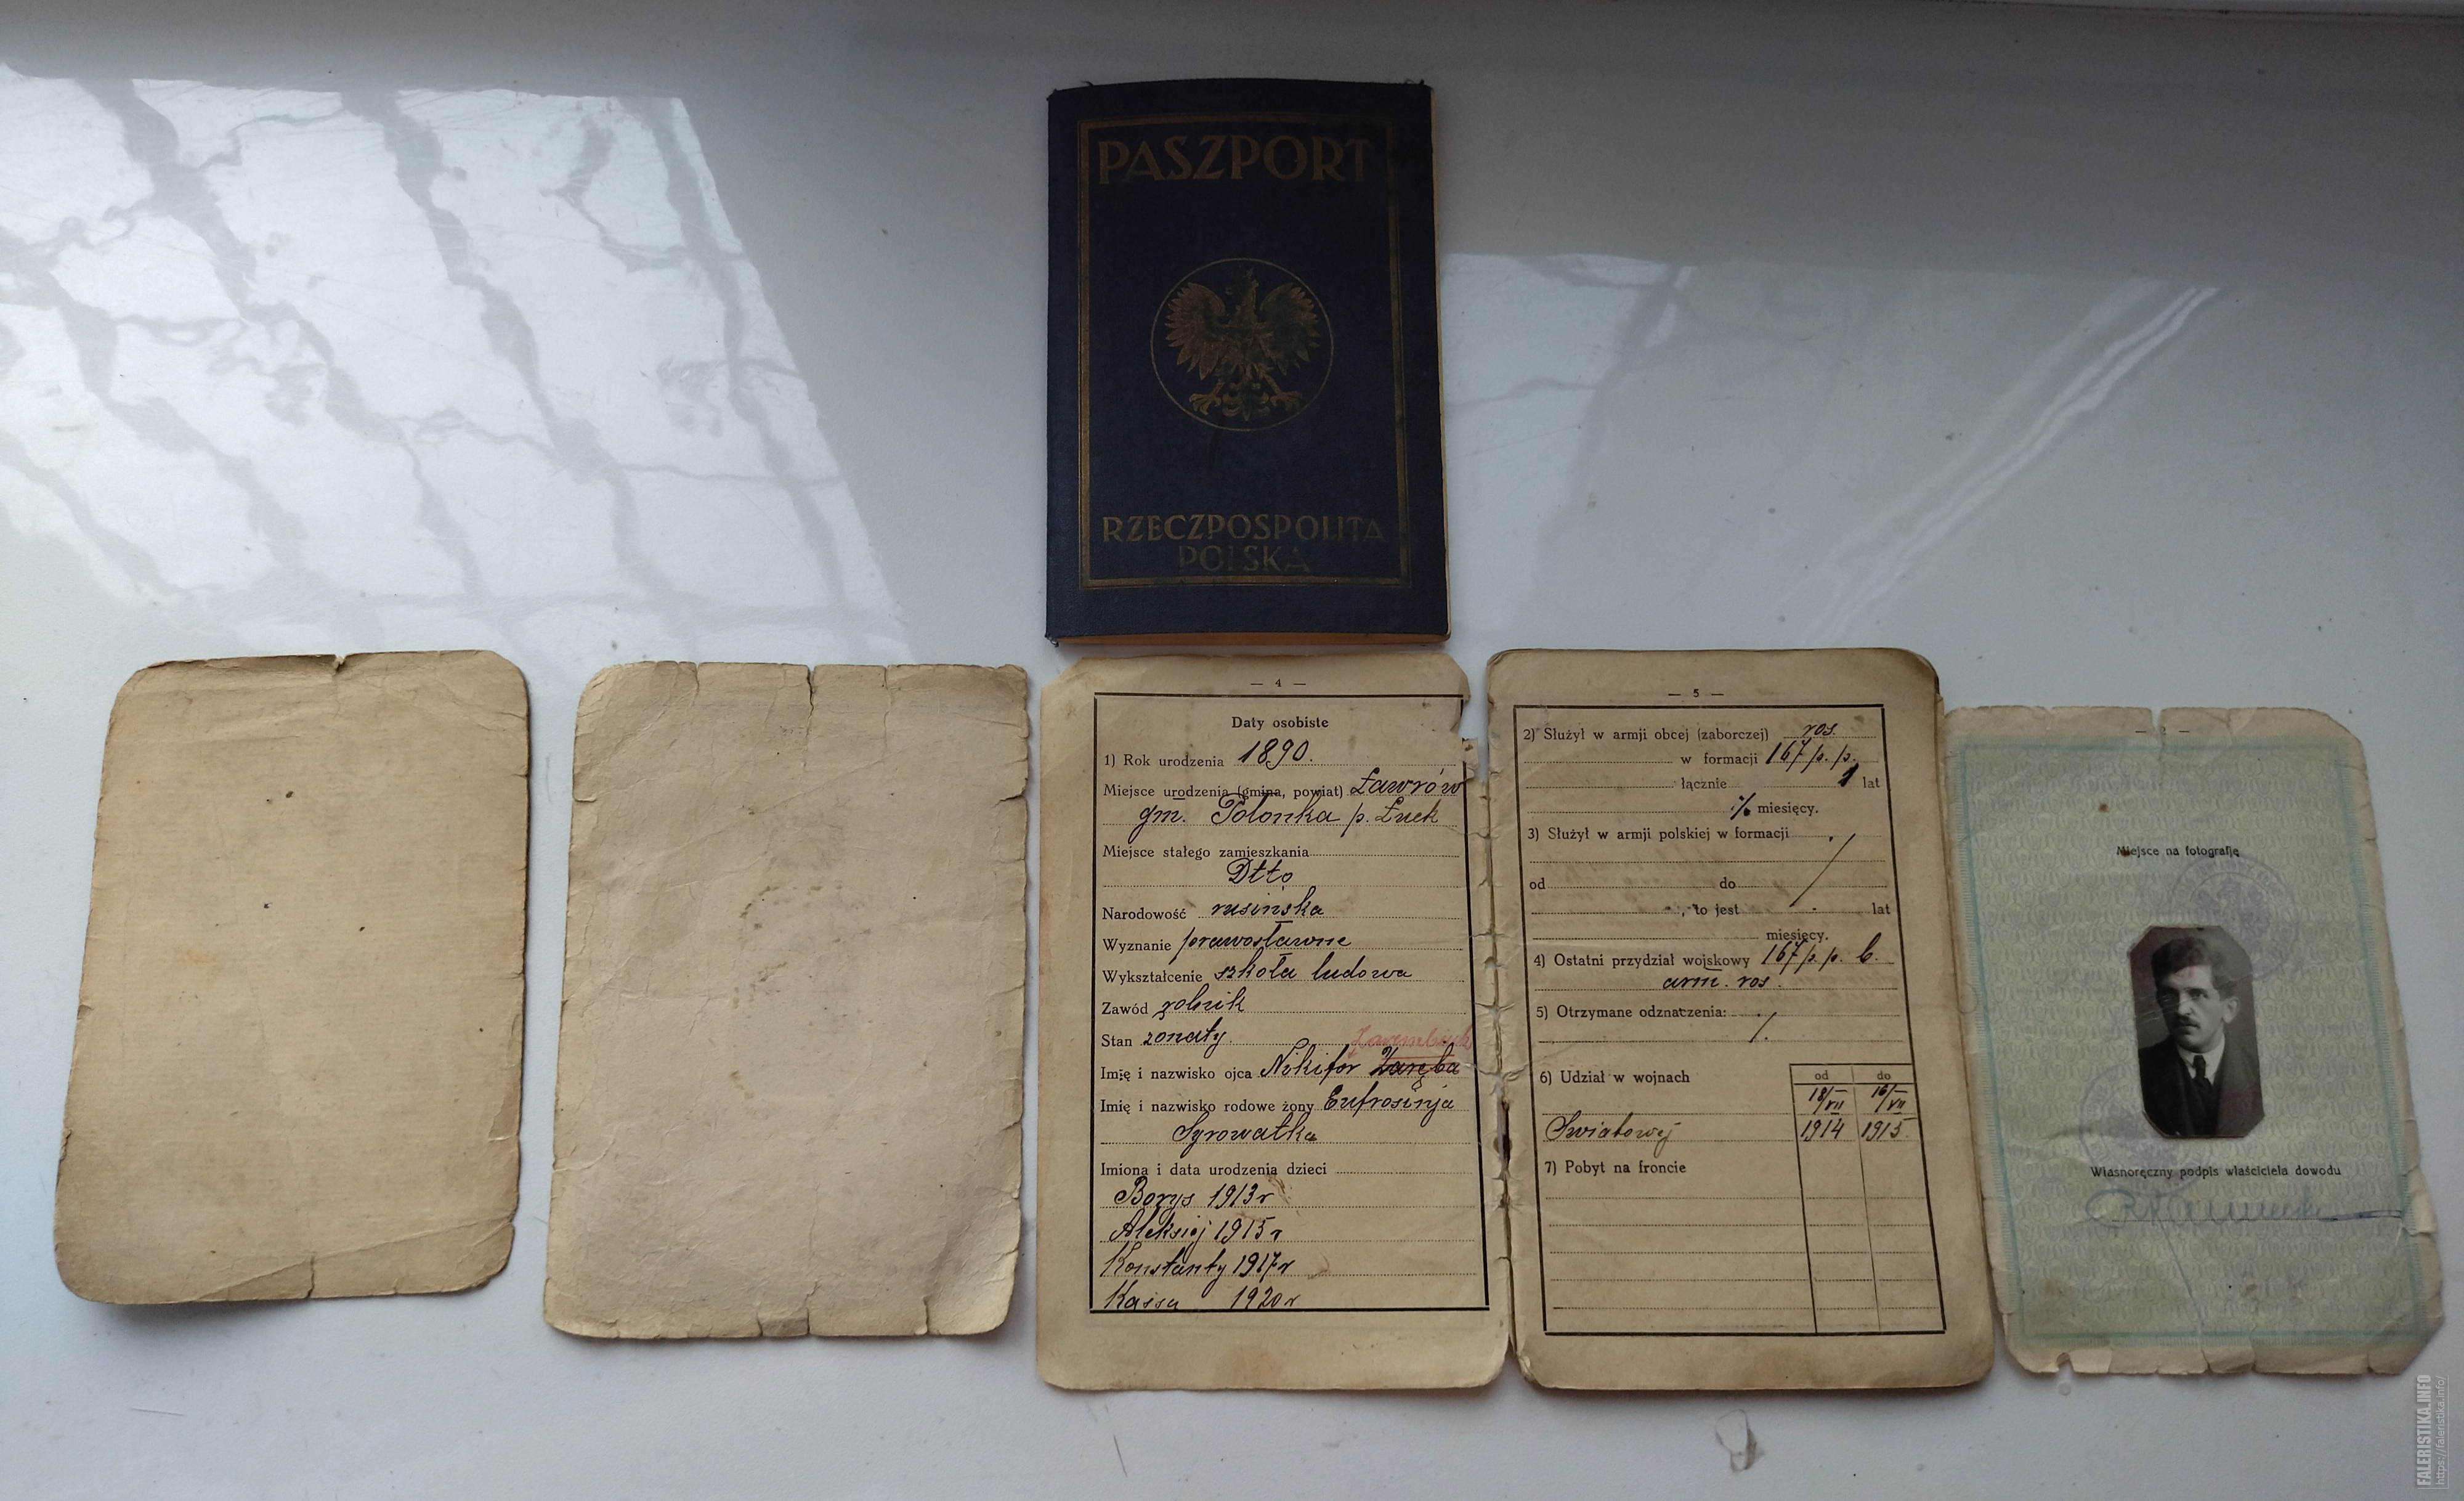 PASZPORT
RZECZPOSPOLITA
POLSKA
— 4 —
Daty osobiste
1) Rok urodzenia 1890.
Miejsce urodzenia (gmina, powiat) Ławrów
gm. Połonka p. Łuck
Miejsce stałego zamieszkania
Dtto
Narodowość rusińska
Wyznanie prawosławne
Wykształcenie szkoła ludowa
Zawód rolnik
Stan żonaty.
Imię i nazwisko ojca Nikifor Zaręba
Imię i nazwisko rodowe żony Eufrosinja
Syrowatka
Imiona i data urodzenia dzieci
Borys 1913 r
Aleksiej 1915 r
Konstanty 1917 r
1920 r
— 5 —
2) Służył w armji obcej (zaborczej) ros.
w formacji 167 p. p.
łącznie 1 lat
% miesięcy.
3) Służył w armji polskiej w formacji
od do
, to jest lat
miesięcy.
4) Ostatni przydział wojskowy 167 p. p. b.
arm. ros.
5) Otrzymane odznaczenia:
6) Udział w wojnach
od do
18/VII 16/VII
Światowej 1914 1915
7) Pobyt na froncie
— 2 —
Miejsce na fotografję
Własnoręczny podpis właściciela dowodu
FALERISTIKA.INFO
https://faleristika.info/